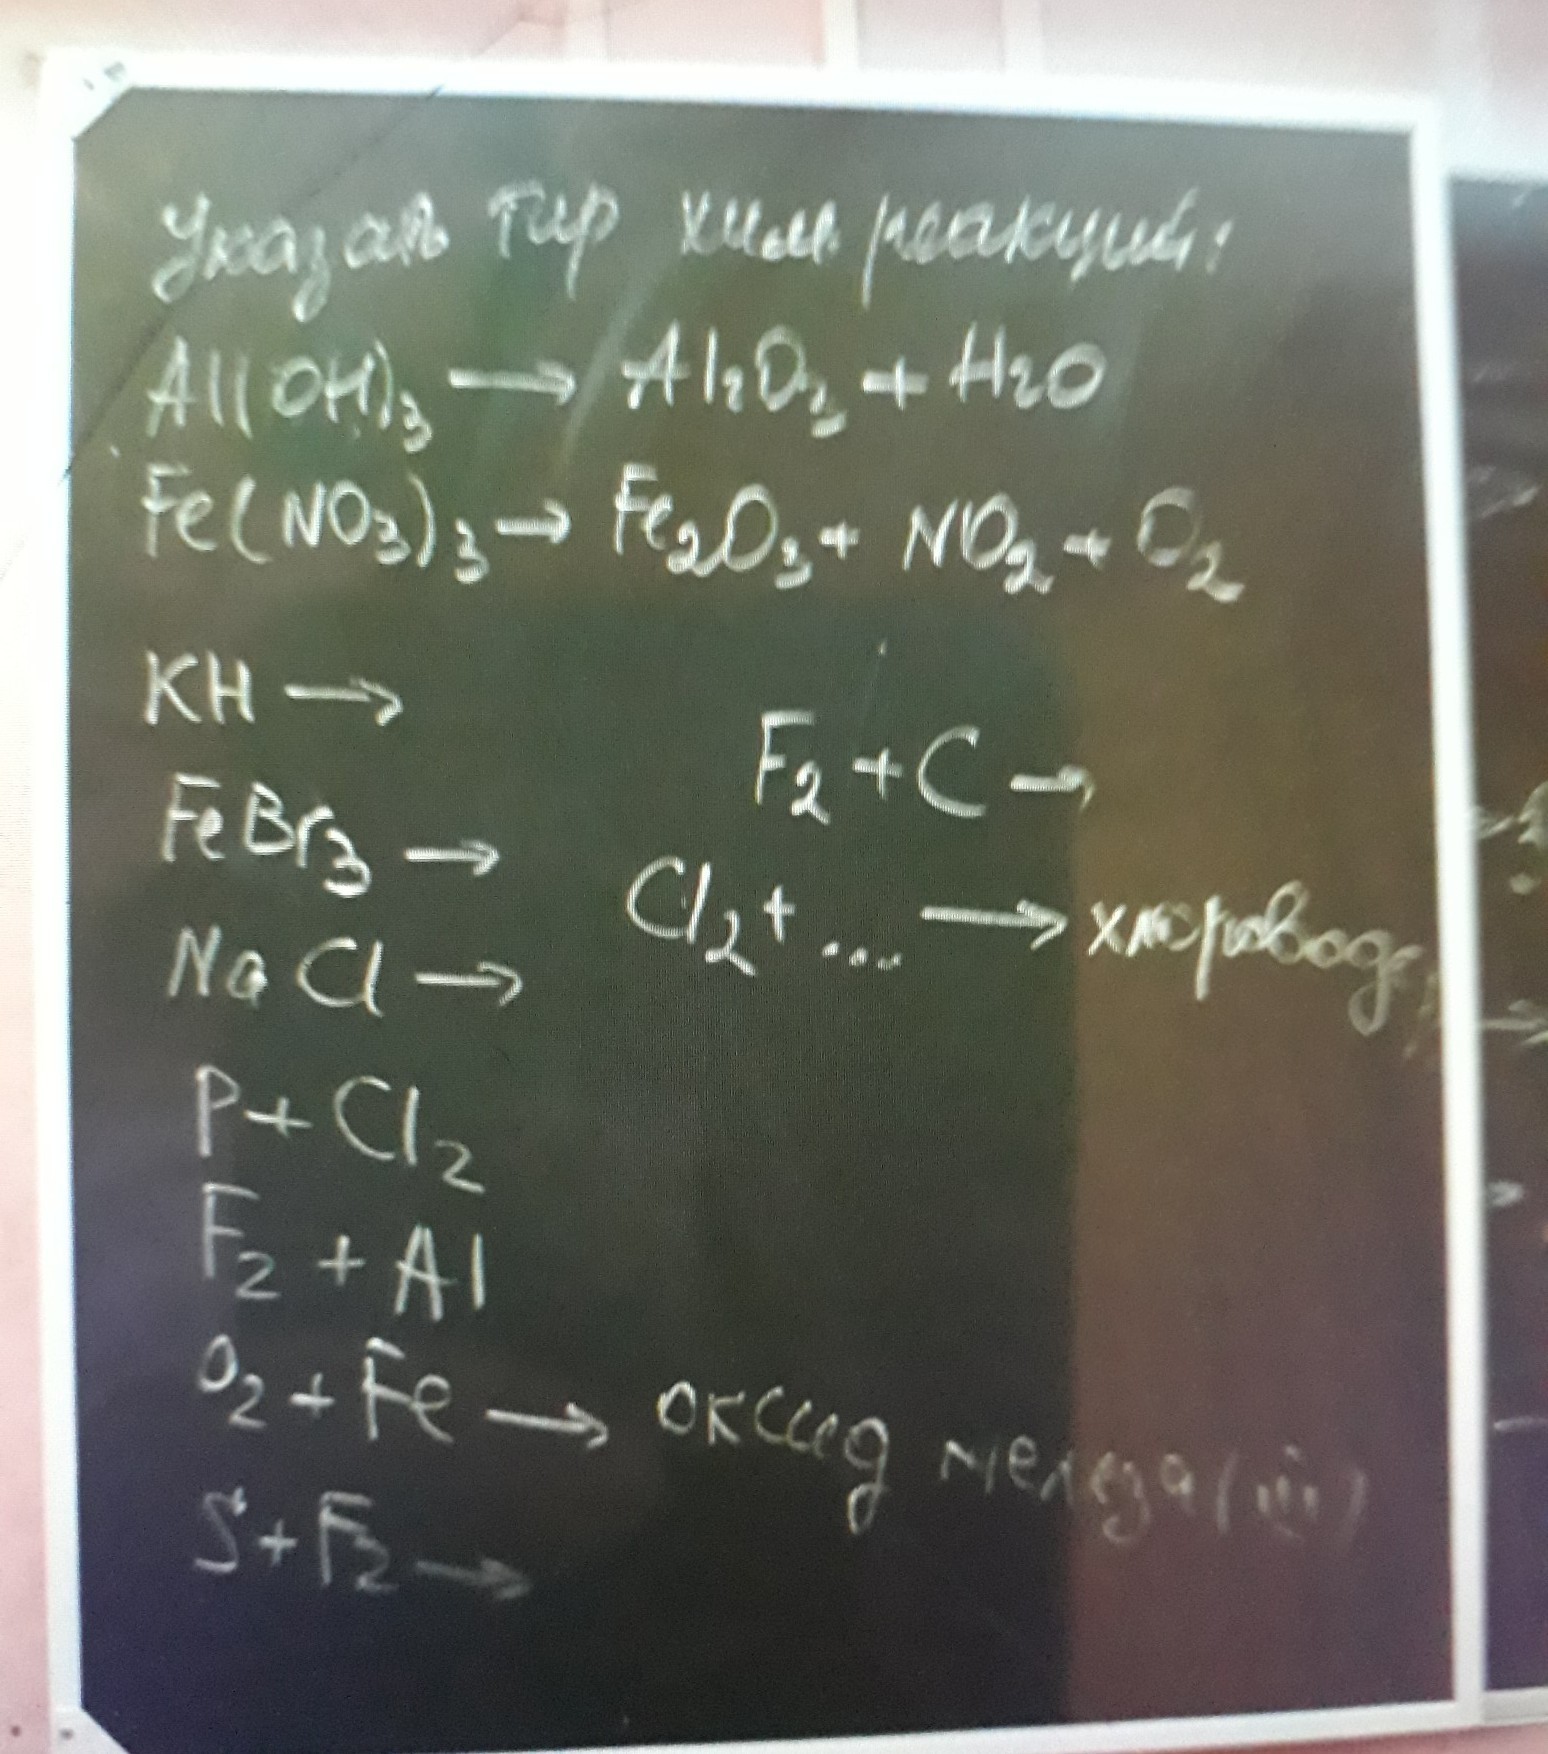 Указать тир хим. реакций:
Al(OH)₃ → Al₂O₃ + H₂O
Fe(NO₃)₃ → Fe₂O₃ + NO₂ + O₂
KH →
F₂ + C →
FeBr₃ →
Cl₂ + ... → хлоровод
NaCl →
P + Cl₂
F₂ + Al
O₂ + Fe → оксид железа (III)
S + F₂ →